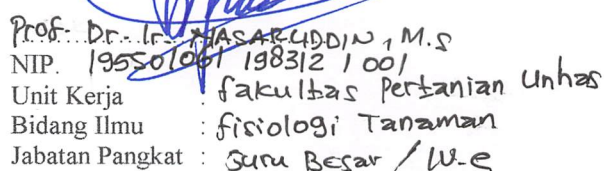 Prof. Dr. Ir. NASARUDDIN, M.S
NIP. 19550106 198312 1 001
Unit Kerja : fakultas Pertanian Unhas
Bidang Ilmu : fisiologi Tanaman
Jabatan Pangkat : Guru Besar / IV-e